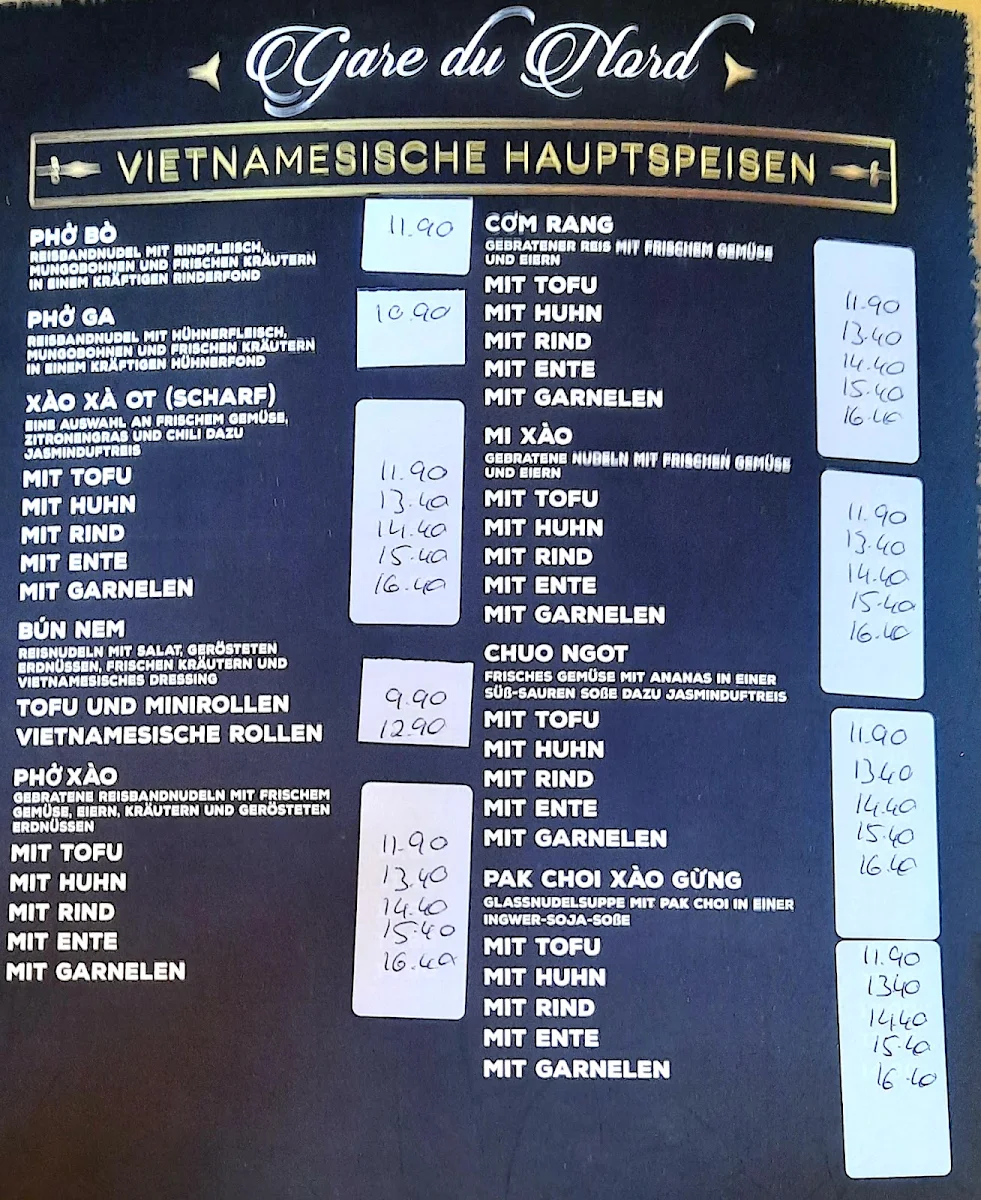 Gare du Nord
VIETNAMESISCHE HAUPTSPEISEN
PHỞ BÒ 11.90
REISBANDNUDEL MIT RINDFLEISCH,
MUNGOBOHNEN UND FRISCHEN KRÄUTERN
IN EINEM KRÄFTIGEN RINDERFOND
PHỞ GA 10.90
REISBANDNUDEL MIT HÜHNERFLEISCH,
MUNGOBOHNEN UND FRISCHEN KRÄUTERN
IN EINEM KRÄFTIGEN HÜHNERFOND
XÀO XÀ OT (SCHARF)
EINE AUSWAHL AN FRISCHEM GEMÜSE,
ZITRONENGRAS UND CHILI DAZU
JASMINDUFTREIS
MIT TOFU 11.90
MIT HUHN 13.40
MIT RIND 14.40
MIT ENTE 15.40
MIT GARNELEN 16.40
BÚN NEM
REISNUDELN MIT SALAT, GERÖSTETEN
ERDNÜSSEN, FRISCHEN KRÄUTERN UND
VIETNAMESISCHES DRESSING
TOFU UND MINIROLLEN 9.90
VIETNAMESISCHE ROLLEN 12.90
PHỞ XÀO
GEBRATENE REISBANDNUDELN MIT FRISCHEM
GEMÜSE, EIERN, KRÄUTERN UND GERÖSTETEN
ERDNÜSSEN
MIT TOFU 11.90
MIT HUHN 13.40
MIT RIND 14.40
MIT ENTE 15.40
MIT GARNELEN 16.40
CƠM RANG
GEBRATENER REIS MIT FRISCHEM GEMÜSE
UND EIERN
MIT TOFU 11.90
MIT HUHN 13.40
MIT RIND 14.40
MIT ENTE 15.40
MIT GARNELEN 16.40
MI XÀO
GEBRATENE NUDELN MIT FRISCHEN GEMÜSE
UND EIERN
MIT TOFU 11.90
MIT HUHN 13.40
MIT RIND 14.40
MIT ENTE 15.40
MIT GARNELEN 16.40
CHUO NGOT
FRISCHES GEMÜSE MIT ANANAS IN EINER
SÜß-SAUREN SOßE DAZU JASMINDUFTREIS
MIT TOFU 11.90
MIT HUHN 13.40
MIT RIND 14.40
MIT ENTE 15.40
MIT GARNELEN 16.40
PAK CHOI XÀO GỪNG
GLASSNUDELSUPPE MIT PAK CHOI IN EINER
INGWER-SOJA-SOßE
MIT TOFU 11.90
MIT HUHN 1340
MIT RIND 14.40
MIT ENTE 15.40
MIT GARNELEN 16.40